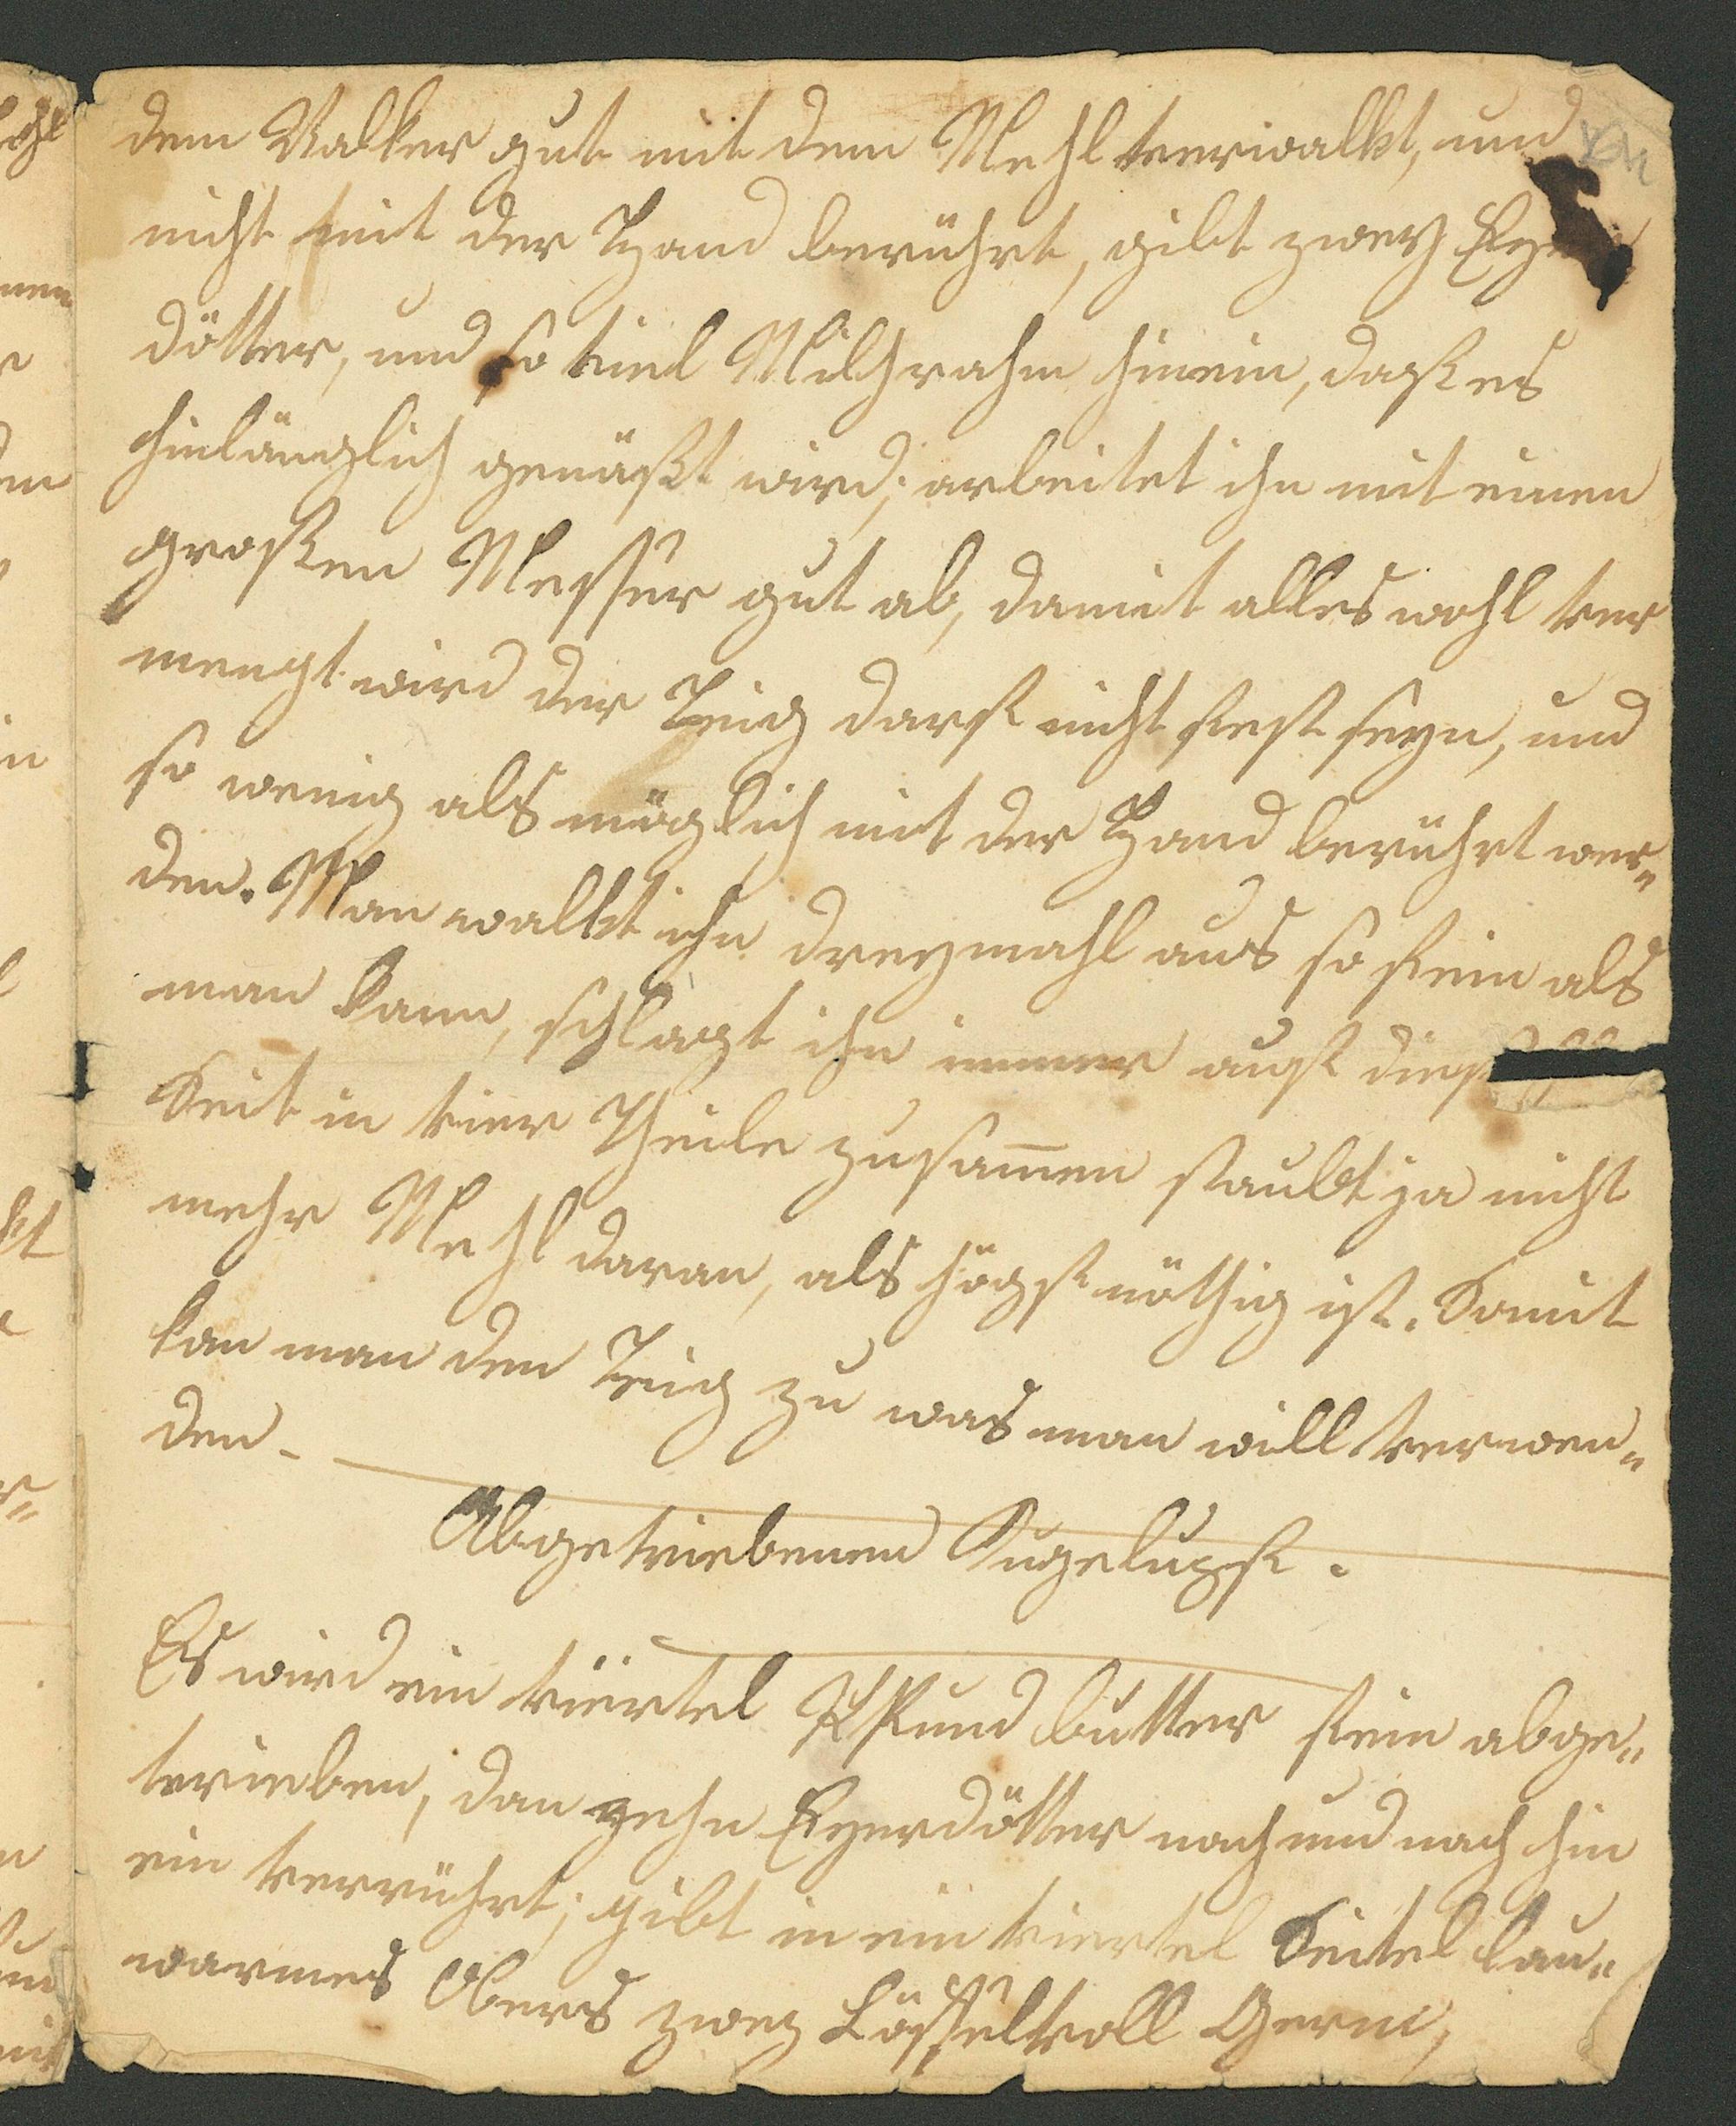 dem Walker gut mit dem Mehl verwalkt, und
nicht mit der Hand berührt, gibt zwey Eyer
dötter, und so viel Milchrahm hinein, daß es
hinlänglich genäßt wird; arbeitet ihn mit einen
großen Messer gut ab, damit alles wohl ver
mengt wird der Teig darf nicht fest seyn, und
so wenig als möglich mit der Hand berührt wer„
den. Man walkt ihn dreymahl aus so fein als
man kann, schlagt ihn immer auf
Seit in vier Theile zusam̄en staubt ja nicht
mehr Mehl daran, als högst nöthig ist. Somit
kan man den Teig zu was man will verwen„
den –
Abgetriebenen Gugelupf.
Es wird ein viertel Pfund butter fein abge„
trieben, dan zehn Eyerdötter nach und nach hin
ein verrührt; gibt in ein viertel Seitel lau„
warmes Obers zwey Löffelvoll Germ,